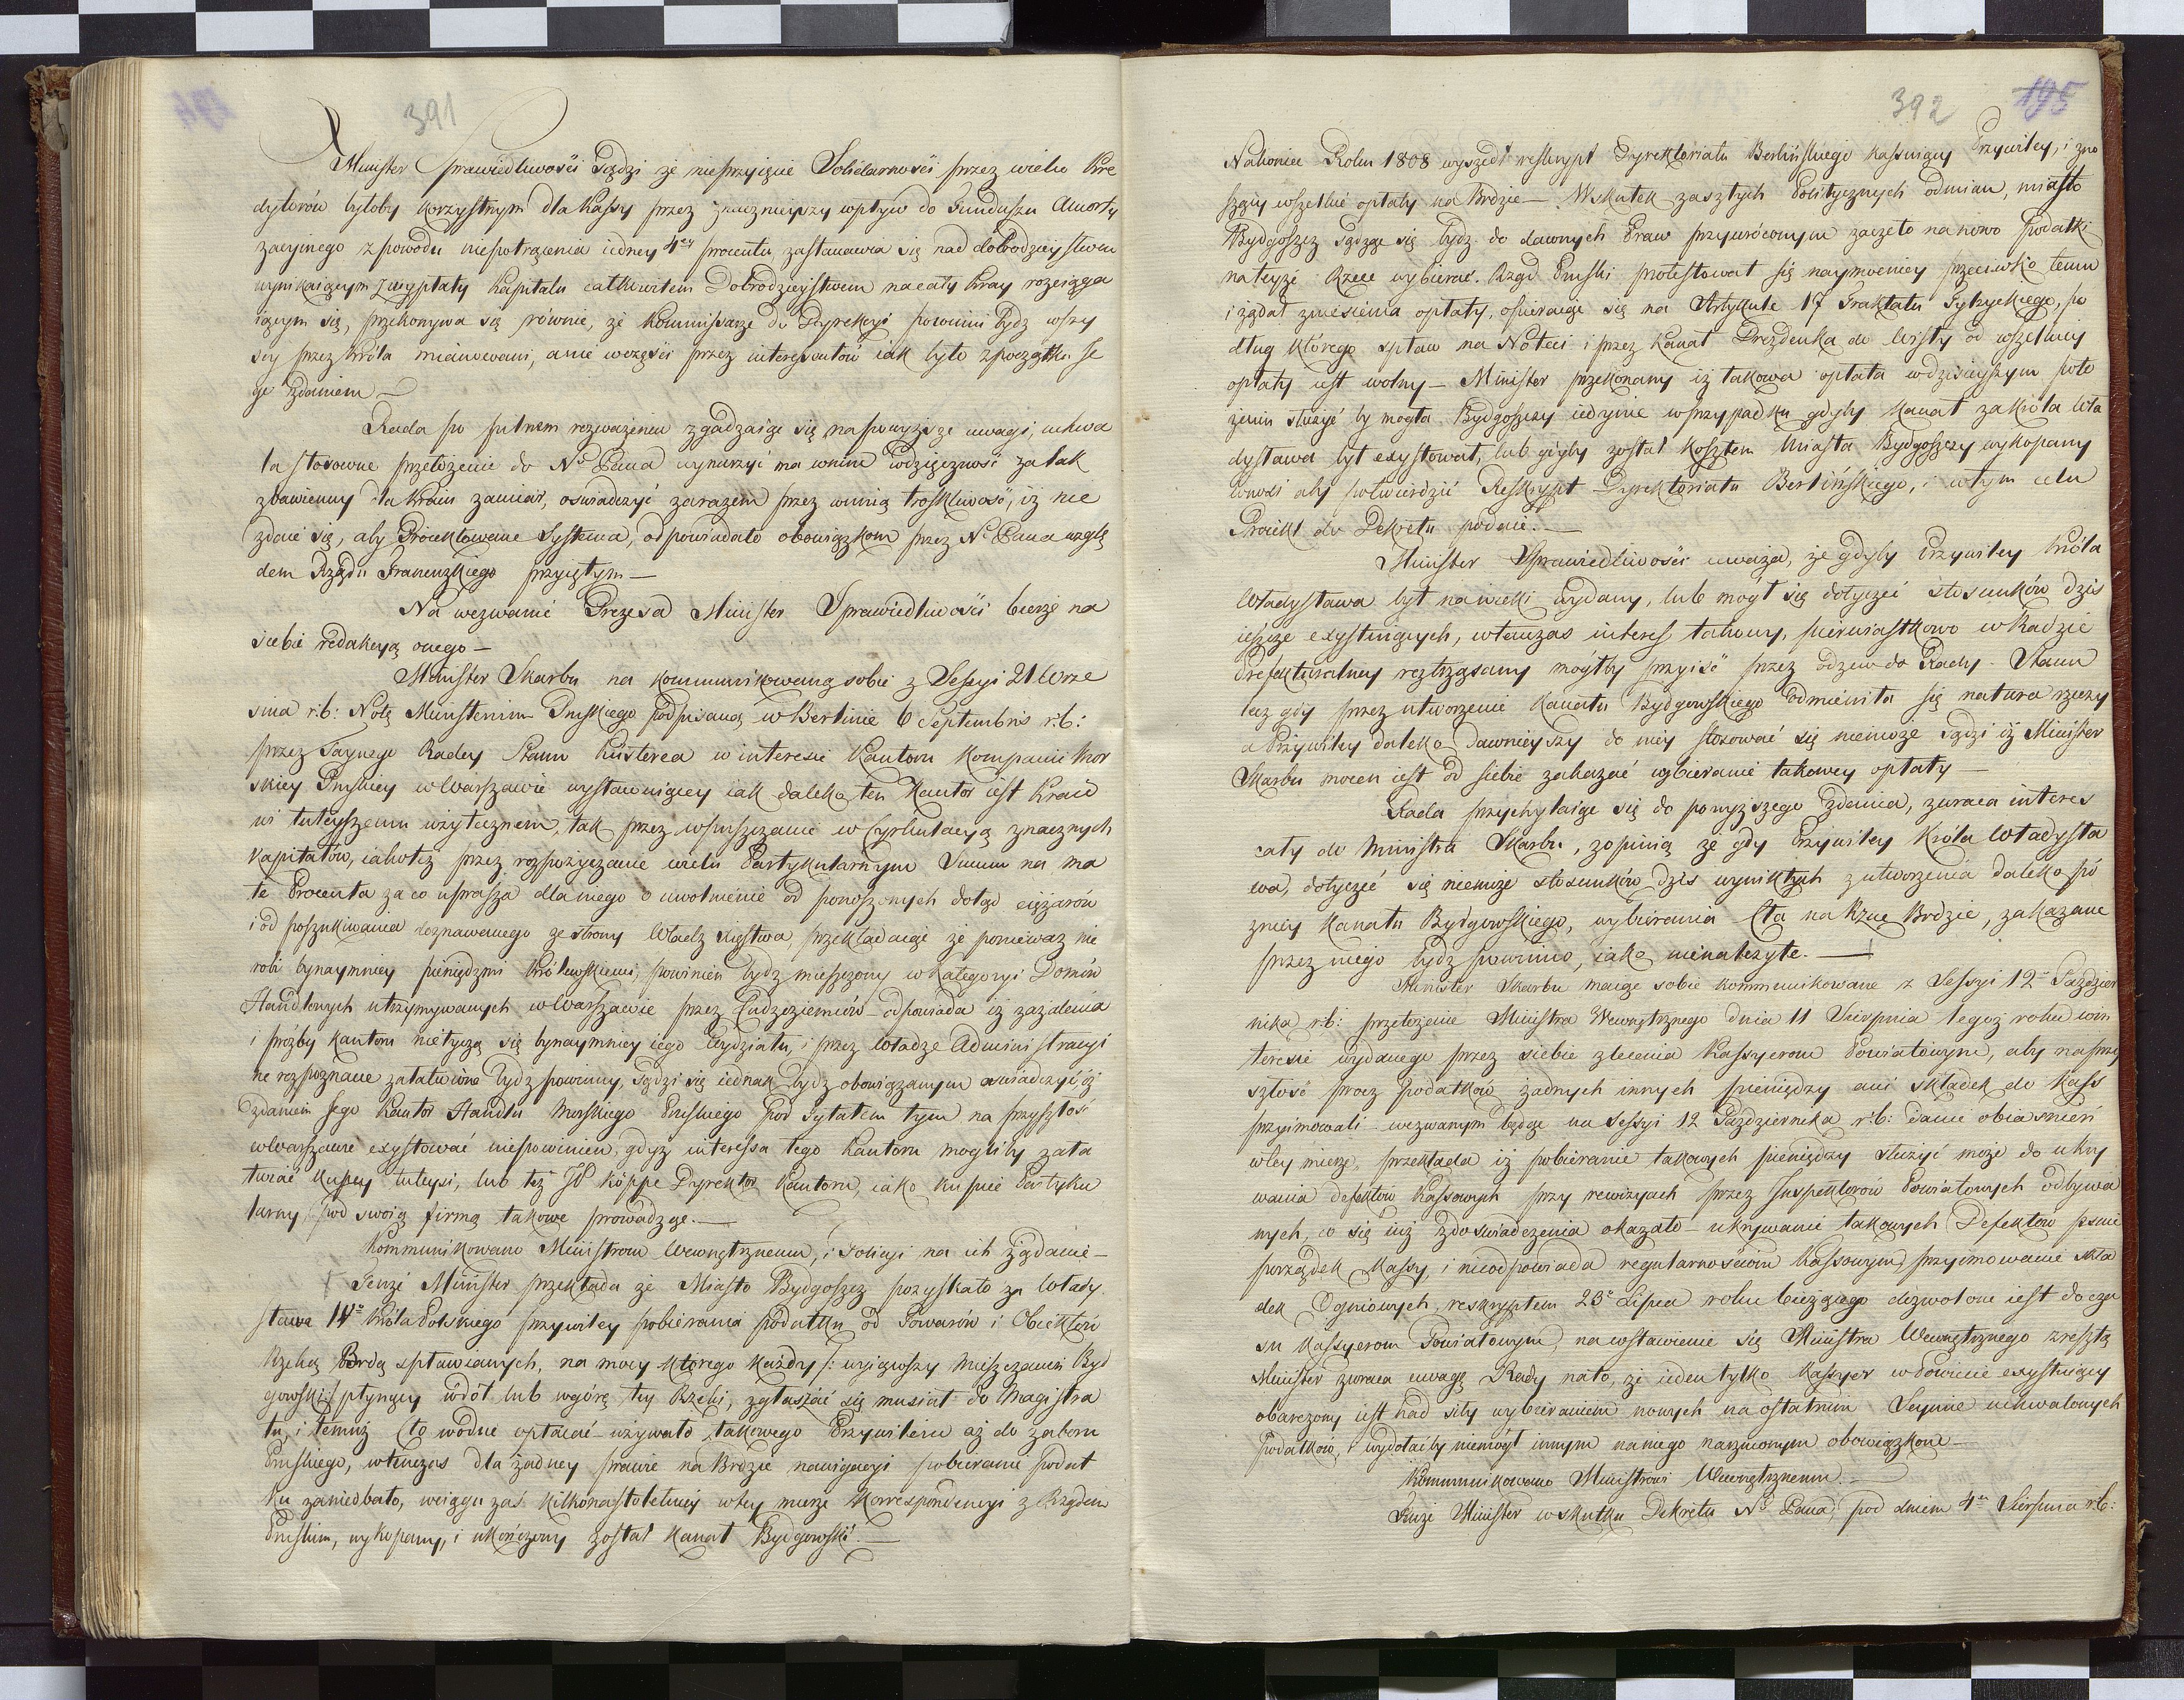 391
Minister Sprawiedliwości sądzi że nieprzyięcie Solidarności przez wielu Kre
dytorów byłoby korzystnym dla Kassy przez znacznieyszy wpływ do Funduszu Amorty
zacyinego z powodu niepotrącenia iedney 4tey procentu, zastanawia się nad dobrodzieystwem
wynikaiącym z wypłaty Kapitału całkowitem Dobrodzieystwem na cały Kray rozciąga
iącym się, przekonywa się równie, że Kommissarze do Dyrekcyi powinni bydz wszy
scy przez Króla mianowani, a nie w części przez interessantów iak było z początku Je
go zdaniem —
Rada po pilnem rozważeniu zgadzaiąc się na powyższe uwagi, uchwa
la stosowne przełożenie do No Pana wynurzyć ma w nim wdzięczność za tak
zbawienny dla Kraiu zamiar, oświadczyć zarazem przez winną troskliwość, iż nie
zdaie się, aby Proiektowane Systema, odpowiadało obowiązkom przez No Pana wzglę
dem Rządu Francuzkiego przyiętym —
Na wezwanie Prezesa Minister Sprawiedliwości bierze na
siebie redakcyą onego —
Minister Skarbu na kommunikowaną sobie z Sessyi 21 Wrze
snia r:b: Notę Ministerium Pruskiego podpisaną w Berlinie 6 Septembris r:b:
przez Taynego Radcy Stanu Küstera w interesie Kantoru Kompanii Mor
skiey Pruskiey w Warszawie wystawuiącey iak daleko ten Kantor iest Kraio
wi tuteyszemu użytecznem, tak przez wpuszczanie w Cyrkulacyą znacznych
Kapitałów, iakoteż przez rozpożyczanie wielu Partykularnym Summ na ma
łe Procenta za co uprasza dla niego o uwolnienie od ponoszonych dotąd ciężarów
i od poszukiwania doznawanego ze strony Władz Xięstwa, przekładaiąc że ponieważ nie
robi bynaymniey pieniędzmi Królewskiemi, powinien bydz mieszczony w Kategoryi Domów
Handlowych utrzymywanych w Warszawie przez Cudzoziemców — odpowiada iż zażalenia
i prożby Kantoru nietyczą się bynaymniey iego Wydziału, i przez Władze Administracyi
ne rozpoznane załatwione bydz powinny, sądzi się iednak bydz obowiązanym oświadczyć, iż
zdaniem Jego Kantor Handlu Morskiego Pruskiego pod Tytułem tym na przyszłość
w Warszawie exystować niepowinien, gdyż interessa tego Kantoru mogliby zała
twiać Kupcy tuteysi, lub też JP Köppe Dyrektor Kantoru, iako Kupiec Partyku
larny, pod swoią firmą takowe prowadząc. —
Kommunikowano Ministrom Wewnętrznemu, i Policyi na ich żądanie —
Tenże Minister przekłada że Miasto Bydgoszcz pozyskało za Włady
sława IVo Króla Polskiego przywiley pobierania podatku od Towarów i Obiektów
Rzeką Brdą spławianych, na mocy którego każdy /: wyiąwszy Mieszczanin Byd
gowski:/ płynący w dół lub w górę tey Rzeki, zgłaszać się musiał do Magistra
tu, i temuż Cło wodne opłacać — używało takowego Przywileiu aż do zaboru
Pruskiego, wtenczas dla żadney prawie na Brdzie nawigacyi pobieranie podat
ku zaniedbało, w ciągu zaś kilkonastoletniey w tey mierze Korrespondencyi z Rządem
Pruskim, wykopany, i ukończony został Kanał Bydgowski. —
392
195
Nakoniec Roku 1808 wyszedł reskrypt Dyrektoriatu Berlińskiego kassuiący Przywiley, i zno
szący wszelkie opłaty na Brdzie — W skutek zaszłych Politycznych odmian, miasto
Bydgoszcz sądząc się bydz do dawnych Praw przywróconym zaczęło na nowo podatki
na teyże Rzece wybierać. Rząd Pruski protestował się naymocniey przeciwko temu
i żądał zniesienia opłaty, opieraiąc się na Artykule 17 Traktatu Tylżyckiego, po
dług którego spław na Noteci i przez Kanał Drezdenka do Wisły od wszelkiey
opłaty iest wolny — Minister przekonany iż takowa opłata w dzisieyszym poło
żeniu służyć by mogła Bydgoszczy iedynie w przypadku gdyby Kanał za Króla Wła
dysława był exystował, lub gdyby został kosztem Miasta Bydgoszczy wykopany
wnosi aby potwierdzić Reskrypt Dyrektoriatu Berlińskiego, i w tym celu
Proiekt do Dekretu podaie. —
Minister Sprawiedliwości uważa, że gdyby Przywiley Króla
Władysława był na wieki wydany, lub mógł się dotyczeć stosunków dziś
ieszcze exystuiących, wtenczas interes takowy, pierwiastkowo w Radzie
Prefekturalney roztrząsany mógłby przyiść przez odzew do Rady Stanu
lecz gdy przez utworzenie Kanału Bydgowskiego odmieniła się natura rzeczy
a Przywiley daleko dawnieyszy do niey stosować się niemoże sądzi iż Minister
Skarbu mocen iest od siebie zakazać wybieranie takowey opłaty —
Rada przychylaiąc się do powyższego zdania, zwraca interes
cały do Ministra Skarbu, z opinią że gdy Przywiley Króla Władysła
wa, dotyczeć się niemoże stosunków dziś wynikłych z utworzenia daleko pó
zniey Kanału Bydgowskiego, wybierania Cła na Rzece Brdzie, zakazane
przez niego bydz powinno, iako nienależyte. —
Minister Skarbu maiąc sobie kommunikowane z Sessyi 12o Paździer
nika r:b: przełożenie Ministra Wewnętrznego dnia 11 Sierpnia tegoż roku w in
teresie wydanego przez siebie zlecenia Kassyerom Powiatowym, aby na przy
szłość procz podatków żadnych innych pieniędzy ani składek do Kass
przyimowali — wezwanym będąc na Sessyi 12 Października r:b: danie obiaśnień
w tey mierze, przekłada iż pobieranie takowych pieniędzy służyć może do ukry
wania defektów Kassowych przy rewizyach przez Inspektorów Powiatowych odbywa
nych, co się iuż z doświadczenia okazało — ukrywanie takowych Defektów psuie
porządek Kassy, i nieodpowiada regularnościom Kassowym, przyimowanie skła
dek Ogniowych, reskryptem 23o Lipca roku bieżącego dozwolone iest do cza
su Kassyerom Powiatowym, na wstawienie się Ministra Wewnętrznego zresztą
Minister zwraca uwagę Rady na to, że ieden tylko Kassyer w Powiecie exystuiący
obarczony iest nad siły wybieraniem nowych na ostatnim Seymie uchwalonych
Podatków, i wydołaćby niemógł innym na niego narzuconym obowiązkom —
Kommunikowano Ministrowi Wewnętrznemu. —
Tenże Minister w skutku Dekretu No Pana, pod dniem 4m Sierpnia r:b: